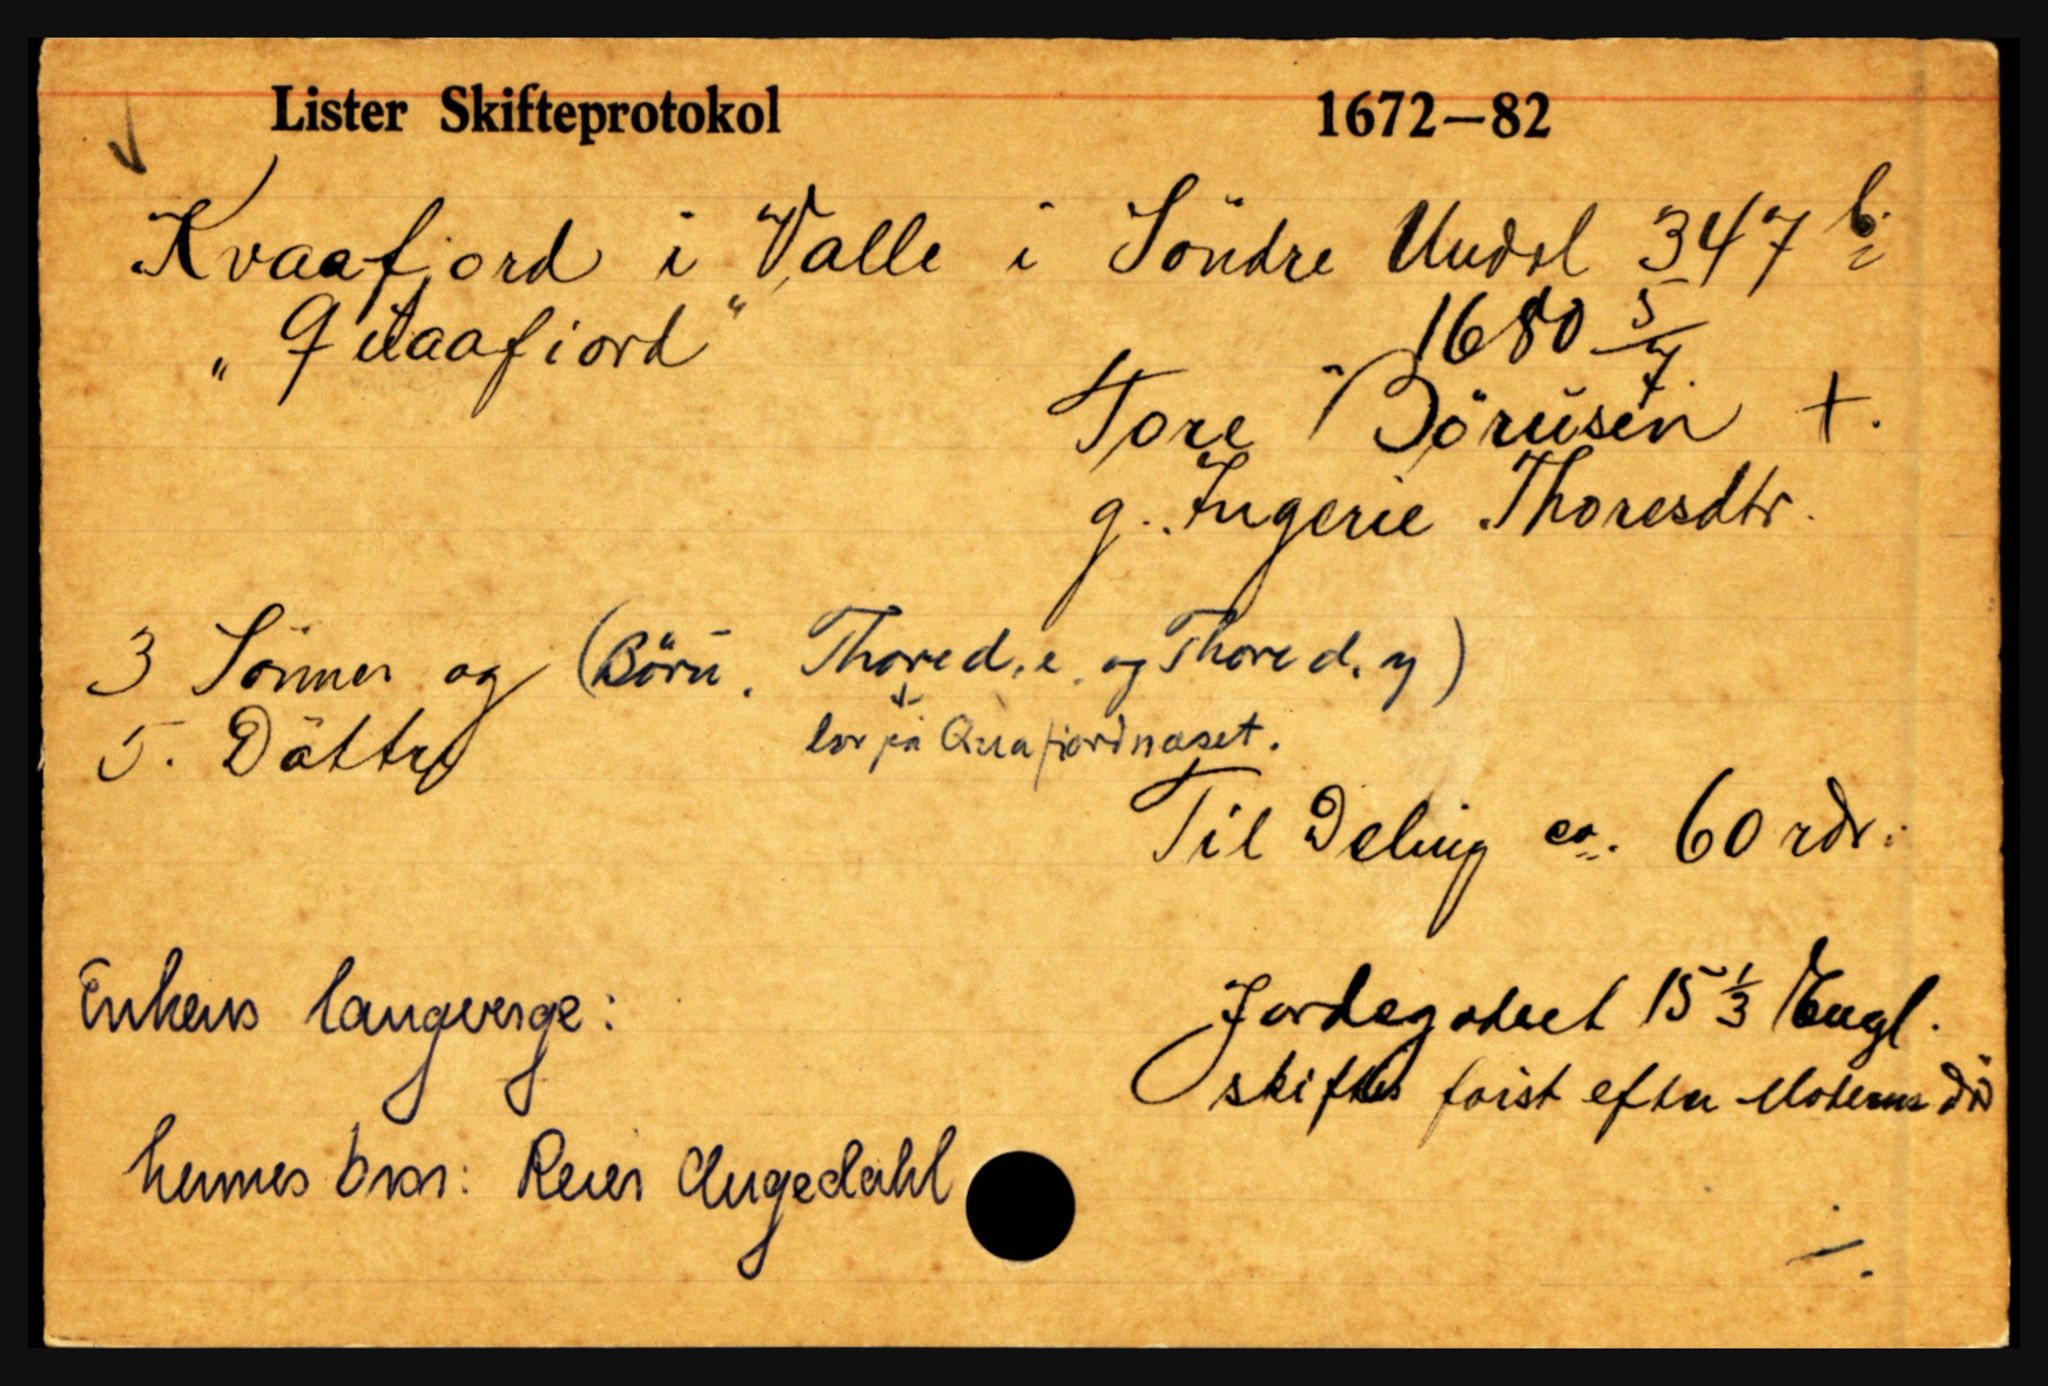 Lister Skifteprotokol 1672—82
Kvaafjord i Valle i Söndre Undal 347 b.
„Qvaafiord“ 1680 5/7.
Tore Börusen +.
g. Ingerie Thoresdtr.
3 Sönner og (Böru, Thore d. e. og Thore d. y)
5. Döttre bor på Quafiordnæset.
Til Deling ca. 60 rdr.
Enkens laugverge: Jordegodset 15 1/3 Engl.
skiftes først efter Moderens Död
hennes bror: Reier Augedahl